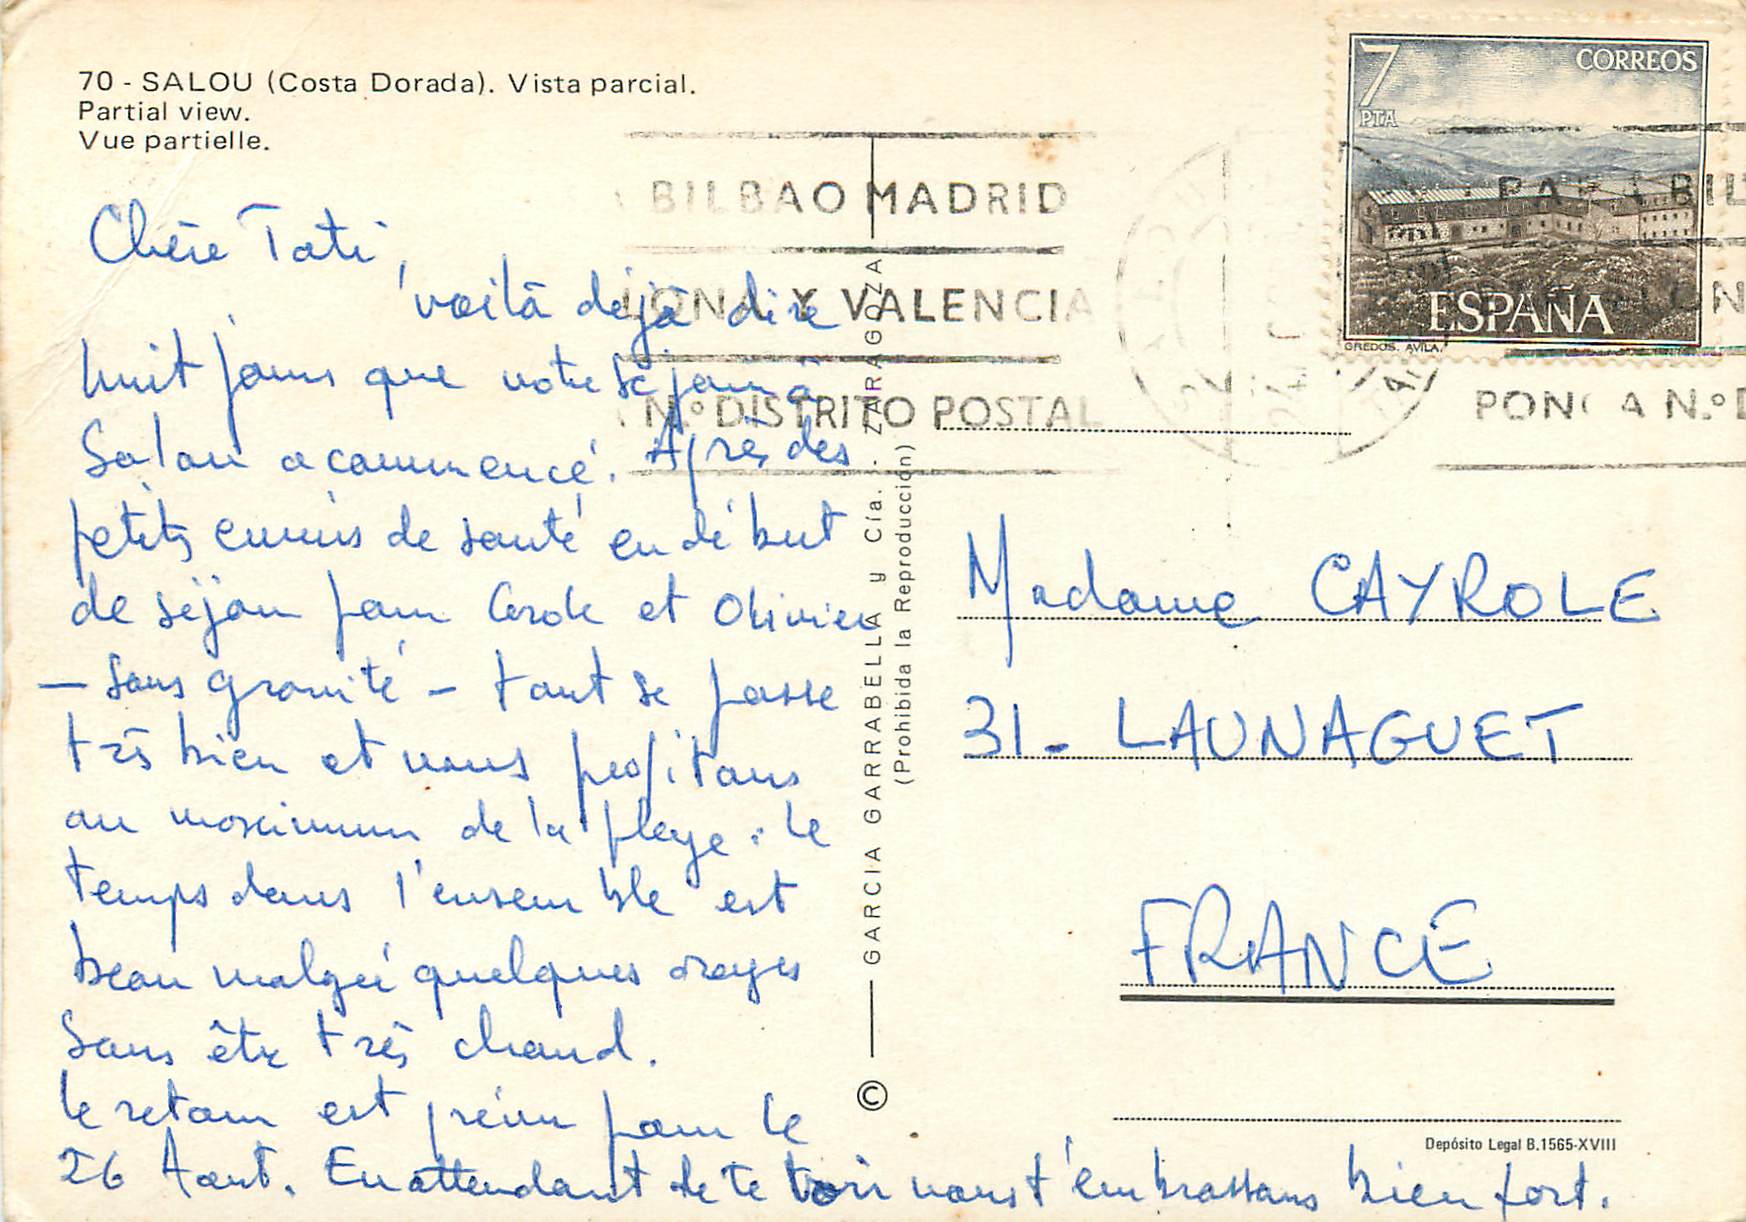 70 - SALOU (Costa Dorada). Vista parcial.
Partial view.
Vue partielle.
Chère Tati,
voilà déjà dix
huit jours que notre séjour à
Salou a commencé. Après des
petits ennuis de santé en début
de séjour pour Carole et Olivier
— sans gravité — tout se passe
très bien et nous profitons
au maximum de la plage : le
temps dans l'ensemble est
beau malgré quelques orages
sans être très chaud.
Le retour est prévu pour le
26 Août. En attendant de te voir nous t'embrassons bien fort.
BILBAO MADRID
LONA Y VALENCIA
N.º DISTRITO POSTAL
GARCIA GARRABELLA y Cía. - ZARAGOZA
(Prohibida la Reproducción)
©
7
PTA
CORREOS
ESPAÑA
GREDOS. AVILA.
PARA BIL
ON
PONGA N.º D
Madame CAYROLE
31 - LAUNAGUET
FRANCE
Depósito Legal B.1565-XVIII